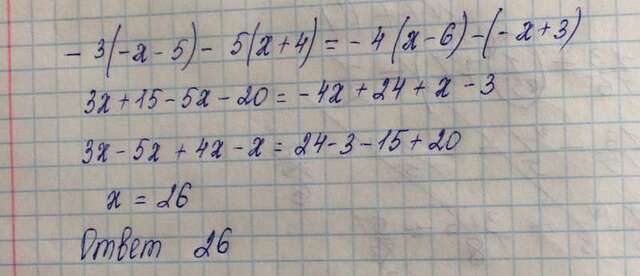 - 3(-x-5) - 5(x+4) = - 4(x-6) - (-x+3)
3x+15-5x-20 = -4x+24+x-3
3x-5x+4x-x = 24-3-15+20
x = 26
Ответ 26